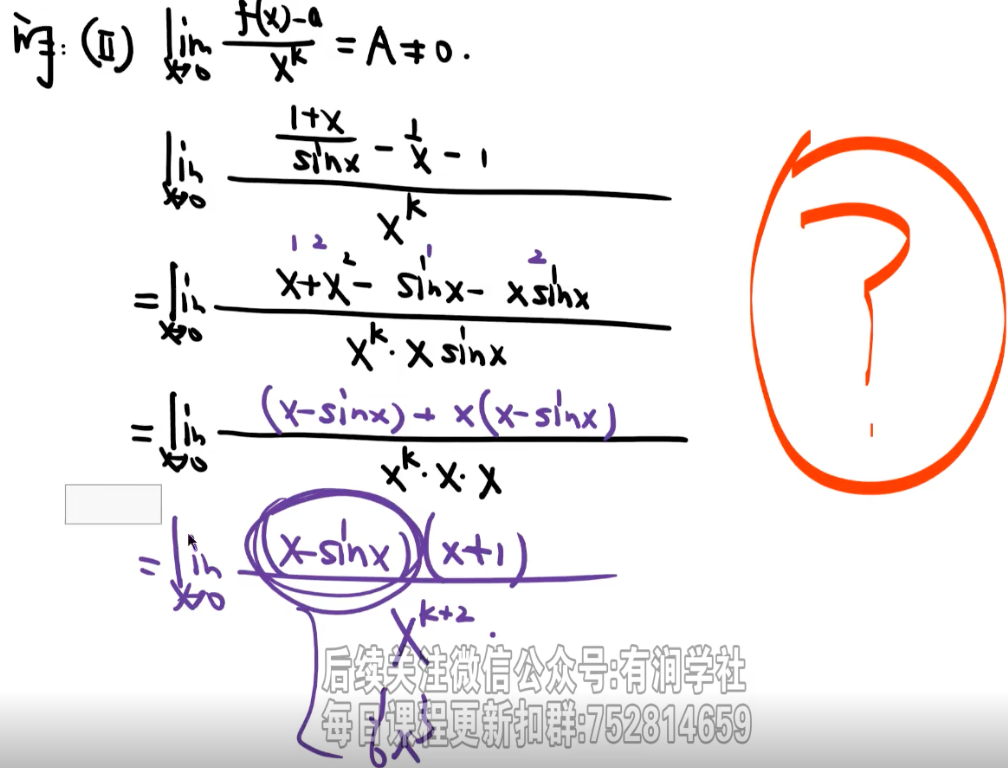 解: (Ⅱ) lim x→0 (f(x)-a)/(x^k) = A ≠ 0.
lim x→0 ((1+x)/(sinx) - 1/x - 1)/(x^k)
1 2 1 2
= lim x→0 (x+x² - sinx - xsinx)/(x^k · x sinx)
= lim x→0 ((x-sinx) + x(x-sinx))/(x^k · x · x)
= lim x→0 ((x-sinx)(x+1))/(x^{k+2}).
1/6 x³
?
后续关注微信公众号:有涧学社
每日课程更新扣群:752814659